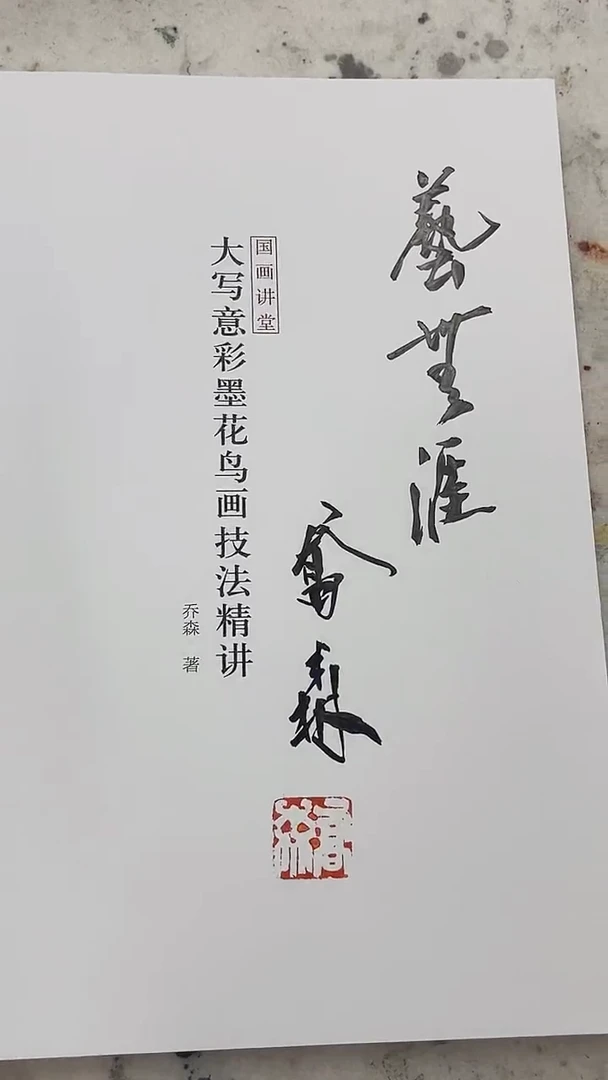 藝無涯
喬森
国画讲堂
大写意彩墨花鸟画技法精讲
乔森 著